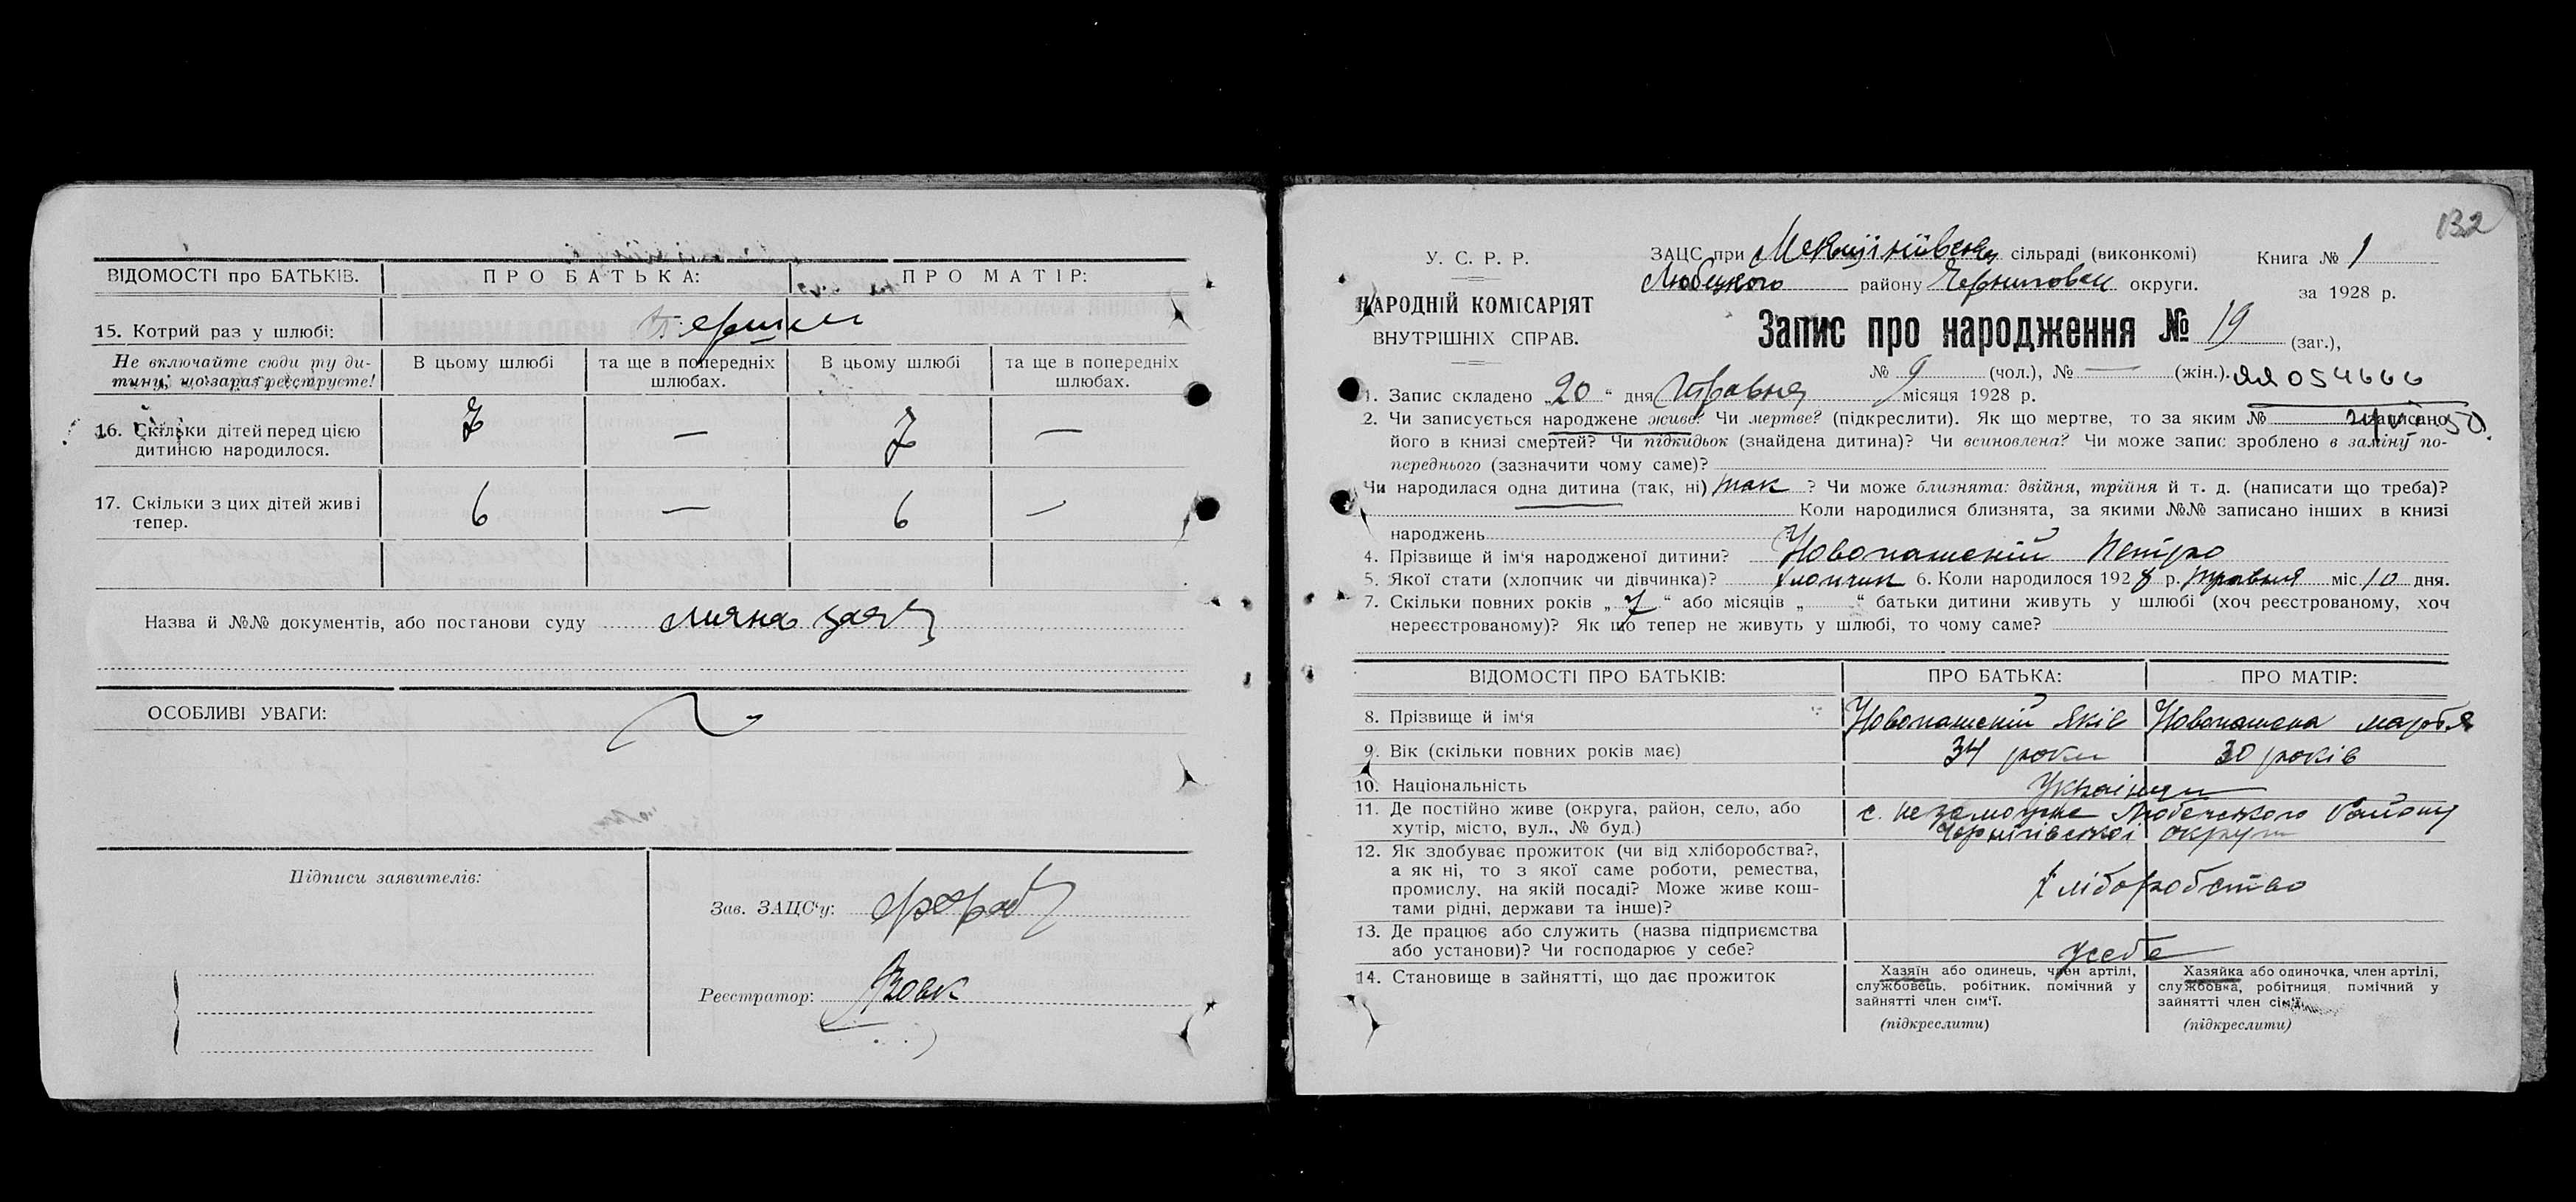 ВІДОМОСТІ про БАТЬКІВ. ПРО БАТЬКА: ПРО МАТІР:
15. Котрий раз у шлюбі: Перший
Не включайте сюди ту ди- В цьому шлюбі та ще в попередніх В цьому шлюбі та ще в попередніх
тину, що зараз реєструєте! шлюбах. шлюбах.
16. Скільки дітей перед цією 7 — 7 —
дитиною народилося.
17. Скільки з цих дітей живі 6 — 6 —
тепер.
Назва й №№ документів, або постанови суду
ОСОБЛИВІ УВАГИ:
Підписи заявителів:
Зав. ЗАЦС'у:
Реєстратор: Вовк
132
У. С. Р. Р.
НАРОДНІЙ КОМІСАРІЯТ
ВНУТРІШНІХ СПРАВ.
ЗАЦС при сільраді (виконкомі) Книга № 1
Любецкого району Черниговск округи. за 1928 р.
Запис про народження № 19 (заг.),
№ 9 (чол.), № — (жін.). ЯЯ 054666
1. Запис складено „20" дня Травня місяця 1928 р.
2. Чи записується народжене живе? Чи мертве? (підкреслити). Як що мертве, то за яким № записано
його в книзі смертей? Чи підкидьок (знайдена дитина)? Чи всиновлена? Чи може запис зроблено в заміну по-
переднього (зазначити чому саме)?
Чи народилася одна дитина (так, ні) так ? Чи може близнята: двійня, трійня й т. д. (написати що треба)?
Коли народилися близнята, за якими №№ записано інших в книзі
народжень
4. Прізвище й ім'я народженої дитини? Новопашений Петро
5. Якої стати (хлопчик чи дівчинка)? Хлопчик 6. Коли народилося 1928 р. травня міс. 10 дня.
7. Скільки повних років „ 7 " або місяців „ " батьки дитини живуть у шлюбі (хоч реєстрованому, хоч
нереєстрованому)? Як що тепер не живуть у шлюбі, то чому саме?
ВІДОМОСТІ ПРО БАТЬКІВ: ПРО БАТЬКА: ПРО МАТІР:
8. Прізвище й ім'я Новопашений Яків Новопашена Марфа
9. Вік (скільки повних років має) 34 роки 30 років
10. Національність Українци
11. Де постійно живе (округа, район, село, або с. Незаможне Любечського Району
хутір, місто, вул., № буд.) Чернігівської округи
12. Як здобуває прожиток (чи від хліборобства?,
а як ні, то з якої саме роботи, ремества, Хліборобство
промислу, на якій посаді? Може живе кош-
тами рідні, держави та інше)?
13. Де працює або служить (назва підприємства
або установи)? Чи господарює у себе? У себе
14. Становище в зайнятті, що дає прожиток
Хазяїн або одинець, член артілі,
службовець, робітник, помічний у
зайнятті член сім'ї.
(підкреслити)
Хазяйка або одиночка, член артілі,
службовка, робітниця помічний у
зайнятті член сім'ї.
(підкреслити)